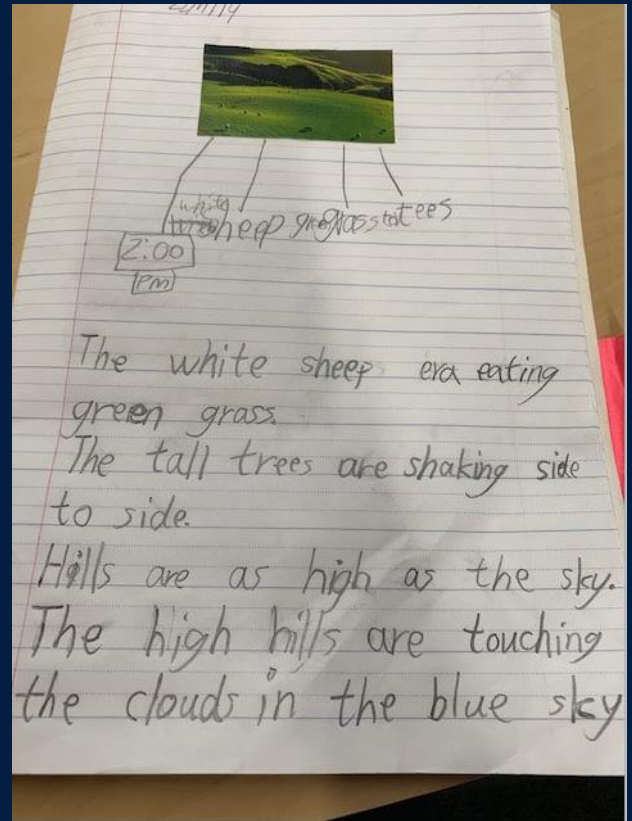 white
sheep grass tees
2:00
PM
The white sheep era eating
green grass.
The tall trees are shaking side
to side.
Hills are as high as the sky.
The high hills are touching
the clouds in the blue sky